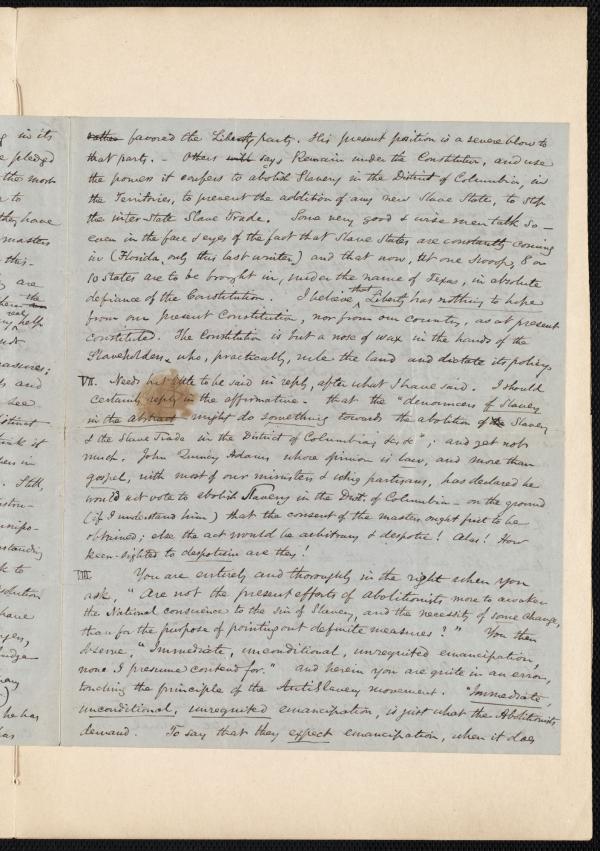 g in its
e pledged
the most
n to
they have
masters
this-
y are
the
real
ny help
not
easures;
s and
see
distinct
think it
hen in
. Still,
nstru-
unispo-
nstanding
k to
solution
have
gers,
nudge
many
)
he has
has
rather favored the Liberty party. His present position is a severe blow to
that party. - Others will say; Remain under the Constitution, and use
the powers it confers to abolish Slavery in the District of Columbia, in
the Territories, to prevent the addition of any new Slave State, to stop
the inter-State Slave Trade. Some very good & wise men talk so —
even in the face & eyes of the fact that Slave States are constantly coming
in (Florida, only this last winter) and that now, at one swoop, 8 or
10 States are to be brought in, under the name of Texas, in absolute
defiance of the Constitution. I believe that Liberty has nothing to hope
from our present Constitution, nor from our country, as at present
constituted. The Constitution is but a nose of wax in the hands of the
Slaveholders, who, practically, rule the land and dictate its policy.
VII. Needs not quite to be said in reply, after what I have said. I should
certainly reply in the affirmative - that the "denouncers of Slavery
in the abstract might do something towards the abolition of the Slavery
& the Slave Trade in the District of Columbia, &c &c"; and yet not
much. John Quincy Adams whose opinion is law, and more than
gospel, with most of our ministers & whig partisans, has declared he
would not vote to abolish Slavery in the Distt. of Columbia — on the ground
(if I understand him) that the consent of the masters ought first to be
obtained; else the act would be arbitrary & despotic! Alas! How
keen-sighted to despotism are they!
VIII. You are entirely and thoroughly in the right when you
ask, "Are not the present efforts of abolitionists more to awaken
the National conscience to the sin of Slavery, and the necessity of some change,
than for the purpose of pointing out definite measures?" You then
observe, "Immediate, unconditional, unrequited emancipation,
none I presume contend for." and herein you are quite in an error,
touching the principle of the AntiSlavery movement. "Immediate,
unconditional, unrequited emancipation, is just what the Abolitionists
demand. To say that they expect emancipation, when it does